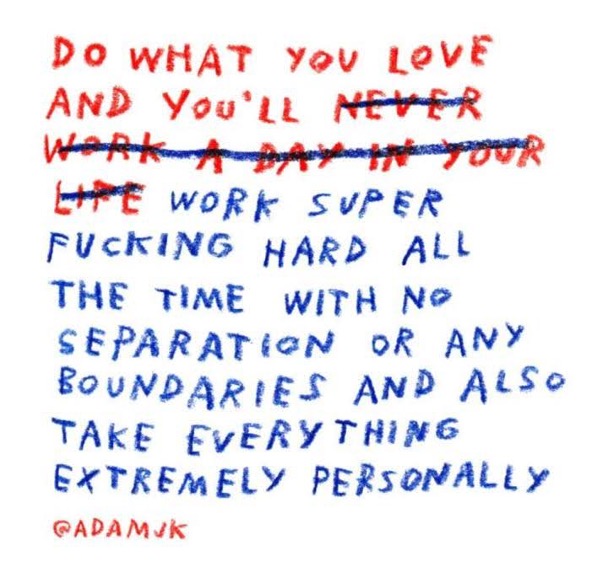 DO WHAT YOU LOVE
AND YOU'LL NEVER
WORK A DAY IN YOUR
LIFE WORK SUPER
FUCKING HARD ALL
THE TIME WITH NO
SEPARATION OR ANY
BOUNDARIES AND ALSO
TAKE EVERYTHING
EXTREMELY PERSONALLY
@ADAMJK